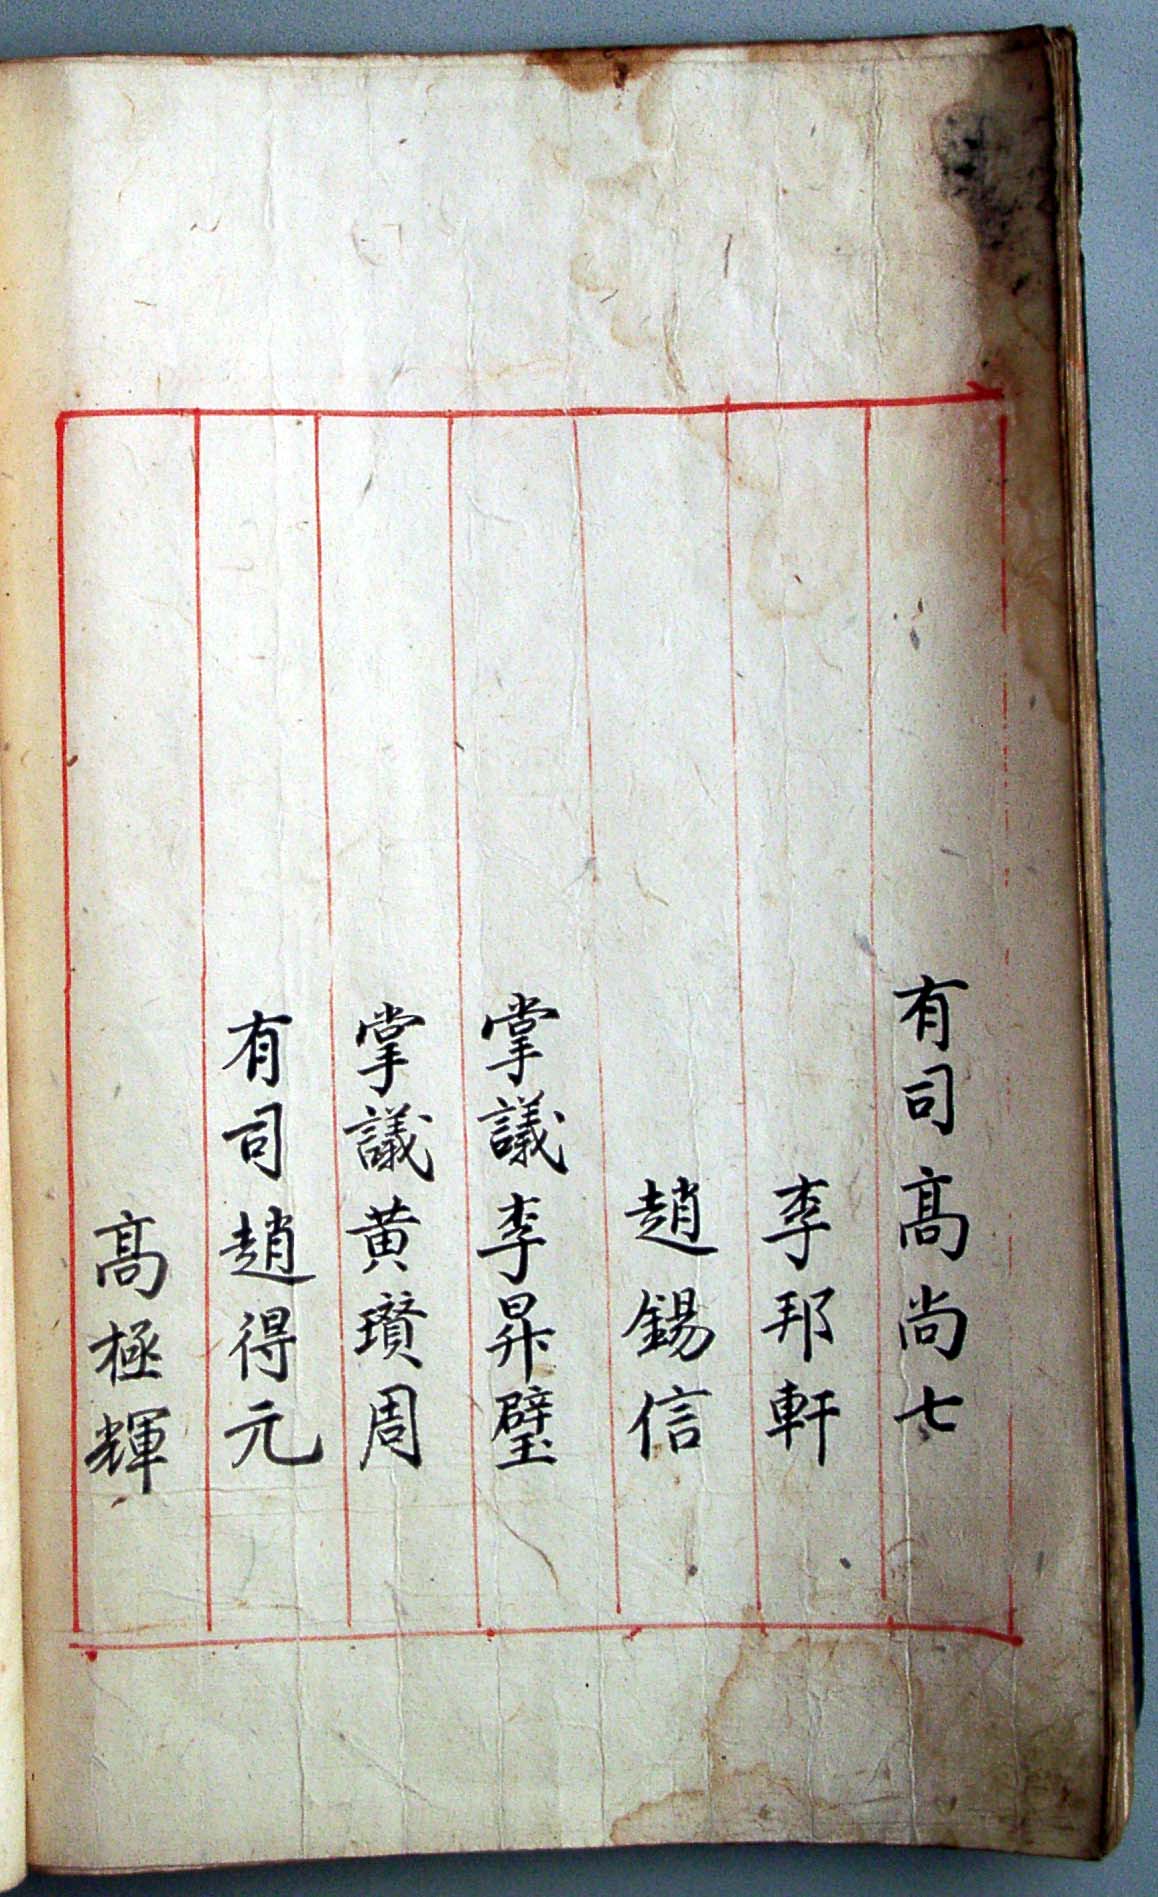 有司髙尚七
李邦軒
趙錫信
掌議李昇璧
掌議黄瓚周
有司趙得元
髙極輝